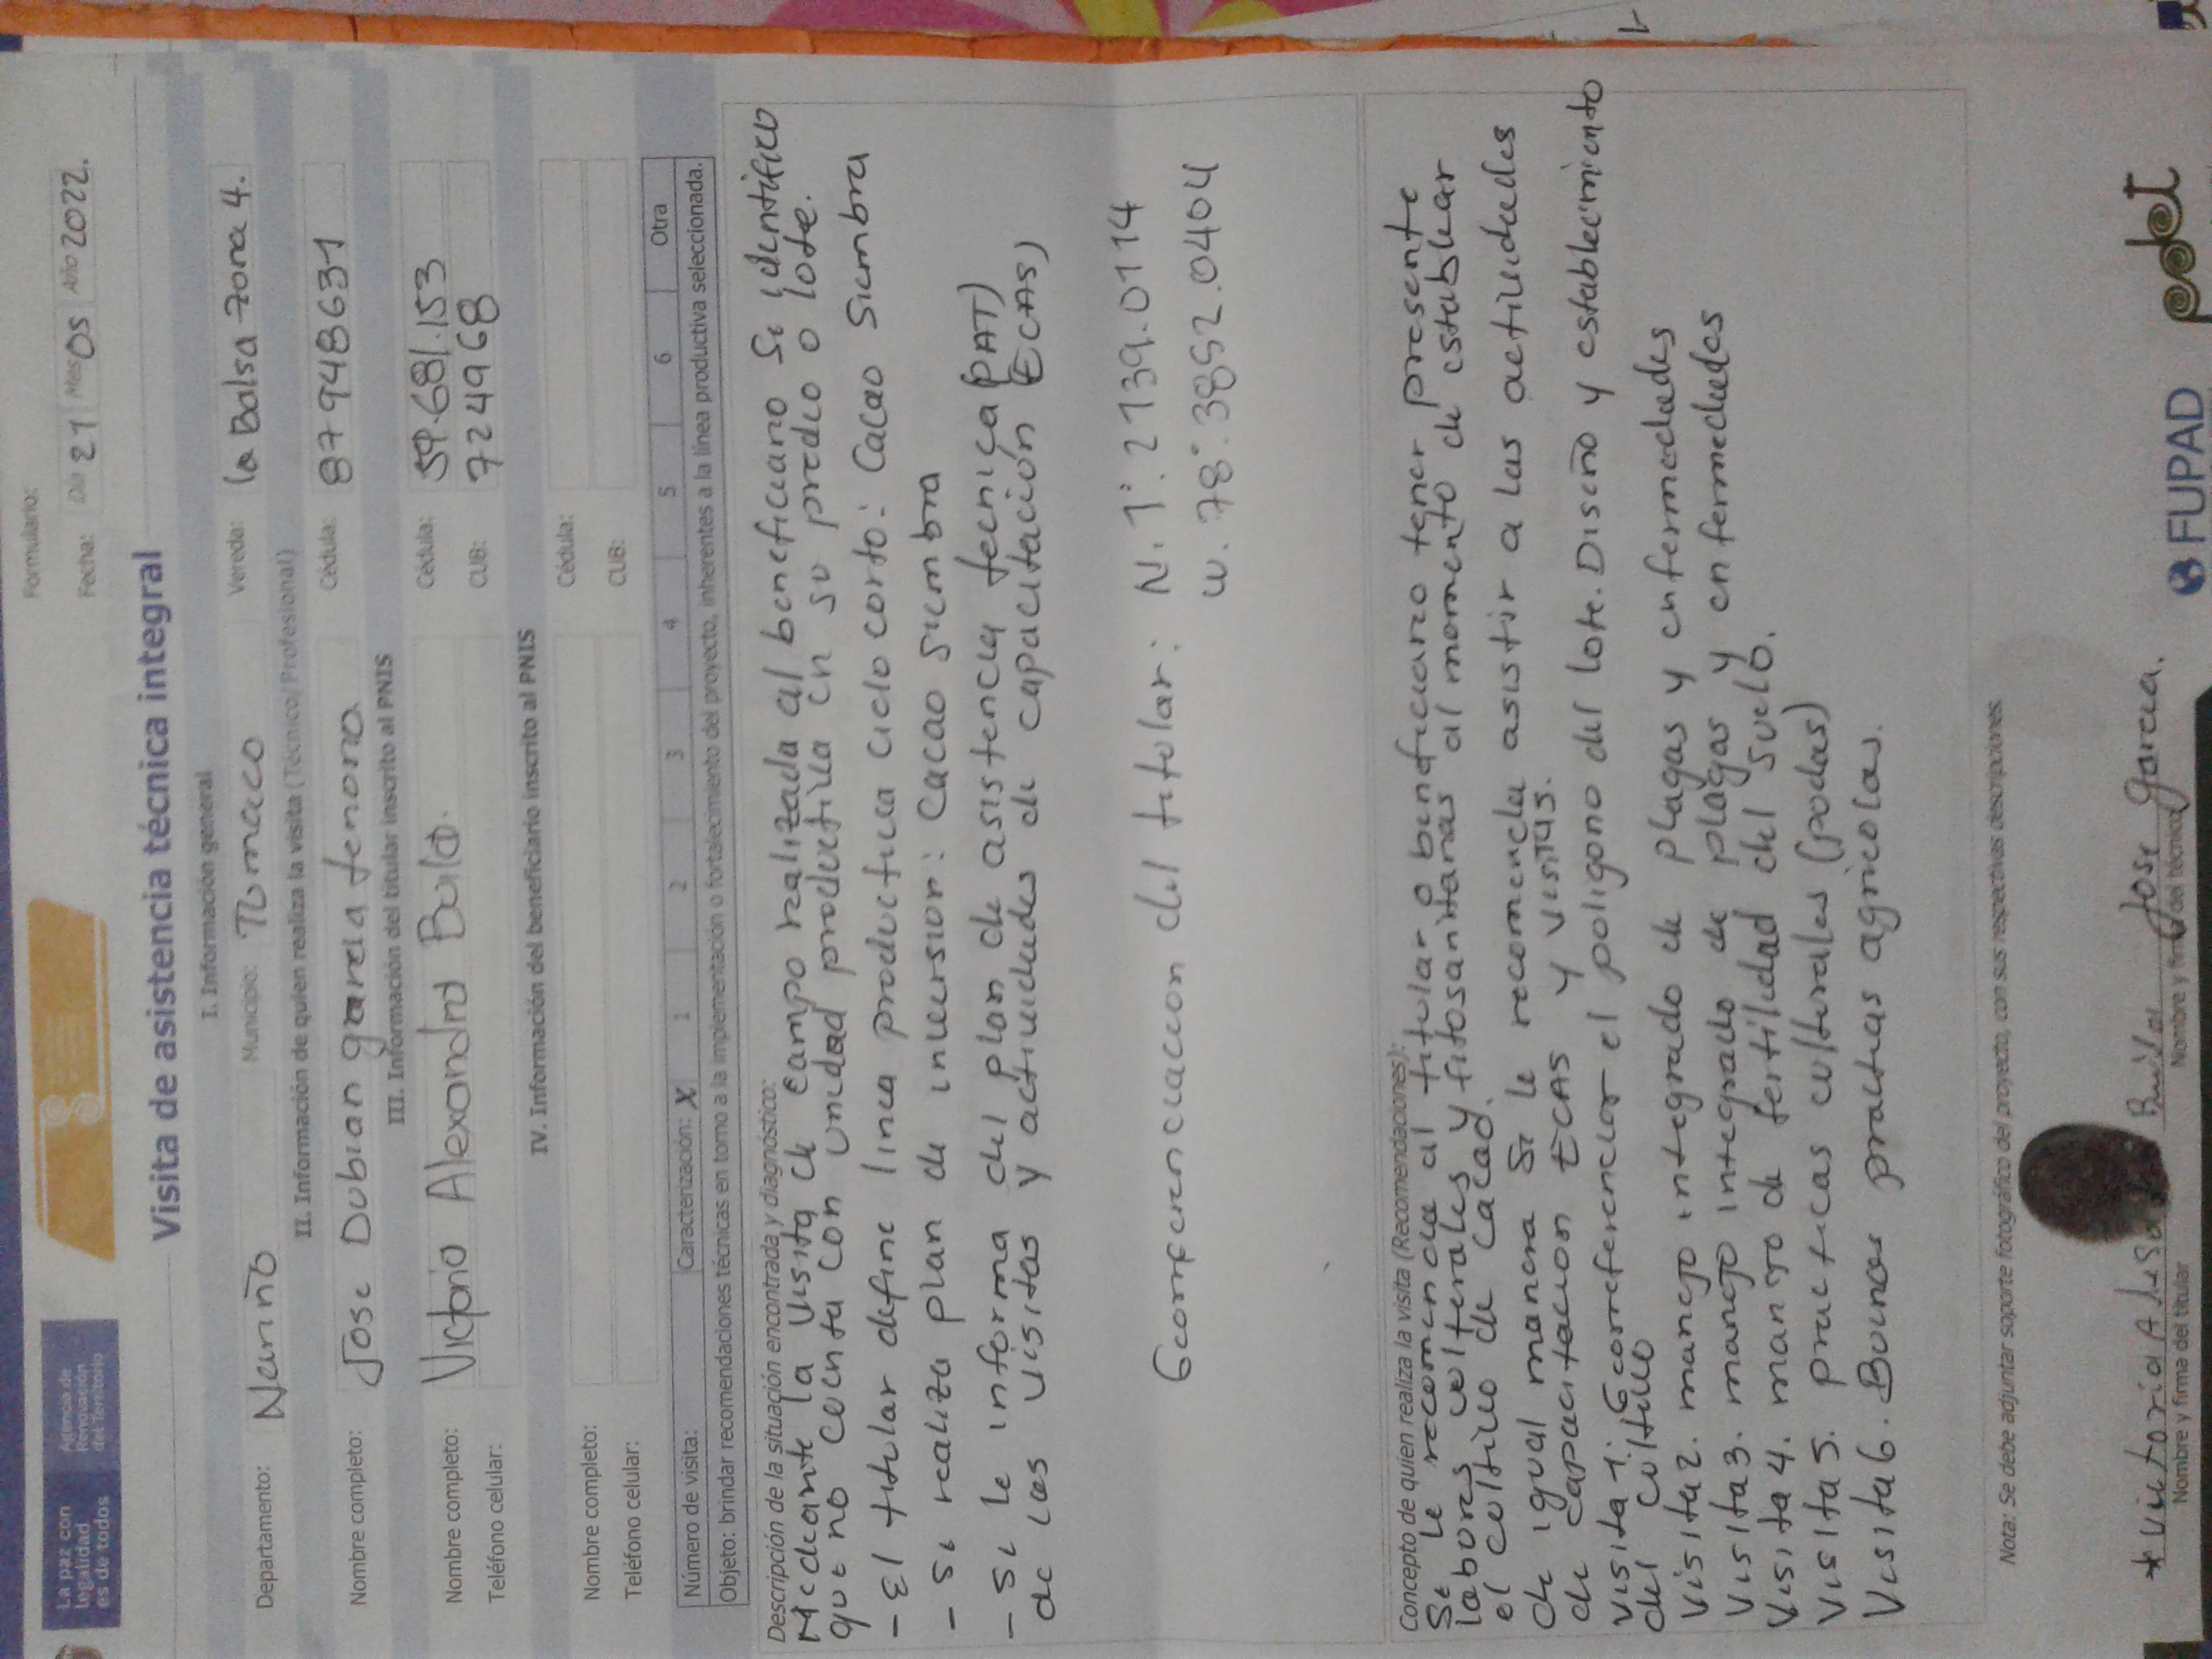 La paz con
legalidad
es de todos
Agencia de
Renovación
del Territorio
Formulario:
Fecha: Día 21 Mes 05 Año 2022.
Visita de asistencia técnica integral
I. Información general
Departamento: Nariño Municipio: Tumaco Vereda: la Balsa zona 4.
II. Información de quien realiza la visita (Técnico/ Profesional)
Nombre completo: Jose Dubian garcia tenorio Cédula: 87948631
III. Información del titular inscrito al PNIS
Nombre completo: Victoria Alexandra Buila. Cédula: 59.681.153
Teléfono celular: CUB: 724968
IV. Información del beneficiario inscrito al PNIS
Nombre completo: Cédula:
Teléfono celular: CUB:
Número de visita: Caracterización: X 1 2 3 4 5 6 Otra
Objeto: brindar recomendaciones técnicas en torno a la implementación o fortalecimiento del proyecto, inherentes a la línea productiva seleccionada.
Descripción de la situación encontrada y diagnóstico:
Mediante la visita de campo realizada al beneficiario se identifico
que no cuenta con unidad productiva en su predio o lote.
- El titular define linea productiva ciclo corto: Cacao Siembra
- Se realiza plan de inversion: Cacao siembra
- Se le informa del plan de asistencia tecnica (PAT)
de las visitas y actividades de capacitación (ECAS)
Georreferenciacion del titular: N. 1°. 2139.0114
W. 78°. 3852.0404
Concepto de quien realiza la visita (Recomendaciones):
Se le recomienda al titular o beneficiario tener presente
labores culturales y fitosanitarias al momento de establecer
el cultivo de cacao.
de igual manera se le recomienda asistir a las actividades
de capacitacion ECAS y visitas.
Visita 1. Georreferenciar el poligono del lote. Diseño y establecimiento
del cultivo
Visita 2. manejo integrado de plagas y enfermedades
Visita 3. manejo integrado de plagas y enfermedades
Visita 4. manejo de fertilidad del suelo.
Visita 5. practicas culturales (podas)
Visita 6. Buenas practicas agricolas.
Nota: Se debe adjuntar soporte fotográfico del proyecto, con sus respectivas descripciones.
* Victoria Buila Jose Garcia.
Nombre y firma del titular Nombre y firma del técnico
FUPAD pdet